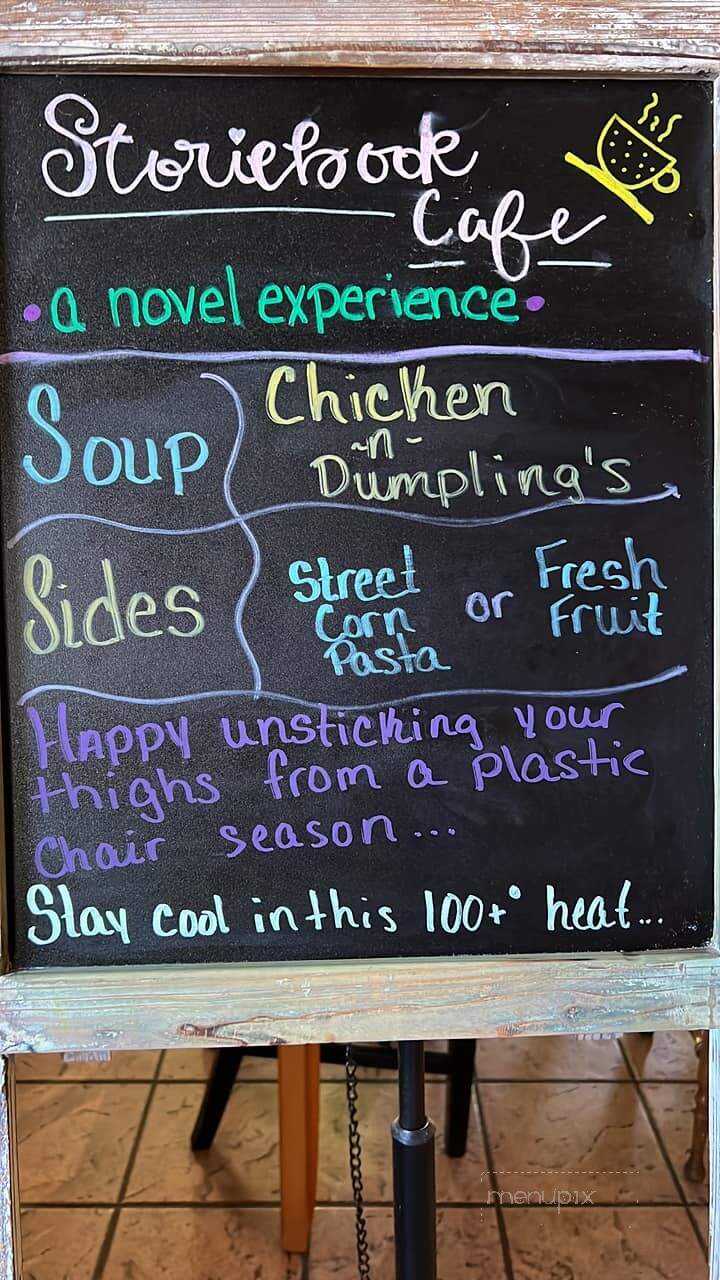 Storiebook
Cafe
•a novel experience•
Soup
Chicken
-n-
Dumpling's
Sides
Street
Corn
Pasta
or
Fresh
Fruit
Happy unsticking your
thighs from a plastic
Chair season...
Stay cool in this 100+° heat...
menupix